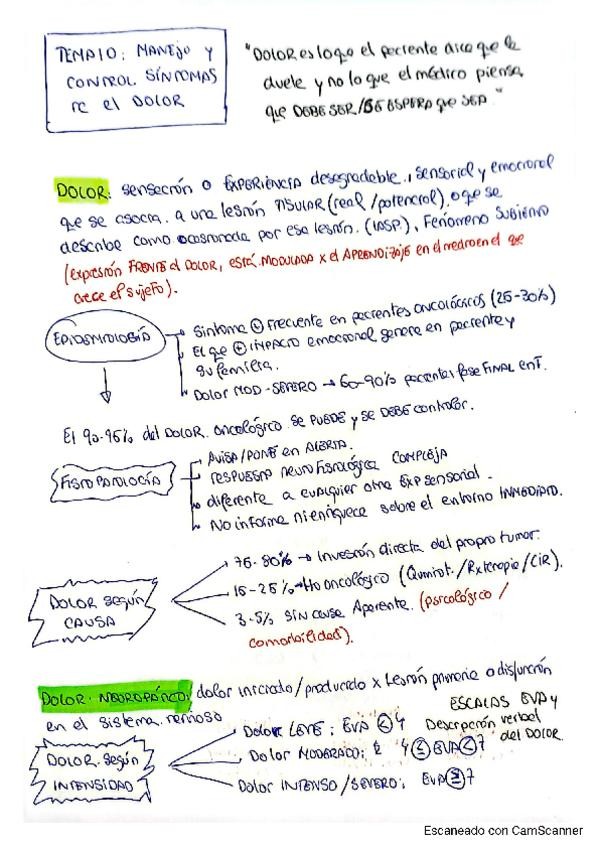 TEMA 10: MANEJO Y
CONTROL SÍNTOMAS
rc el DOLOR
"DOLOR es lo que el paciente dice que le
duele y no lo que el médico piensa
que DEBE SER/SE ESPERA que SEA."
DOLOR: sensación o EXPERIENCIA desagradable, sensorial y emocional
que se asocia a una lesión TISULAR (real/potencial), o que se
describe como ocasionada por esa lesión. (IASP). Fenómeno SUBJETIVO
(expresión FRENTE al DOLOR, está MODULADA x el APRENDIZAJE en el medio en el que
crece el sujeto).
EPIDEMIOLOGÍA
→ Síntoma ⊕ frecuente en pacientes oncológicos (25-30%)
El que ⊕ IMPACTO emocional genera en paciente y
su familia.
Dolor MOD-SEVERO → 60-90% pacientes fase FINAL enf.
El 90-95% del DOLOR oncológico se PUEDE y se DEBE controlar.
FISIOPATOLOGÍA
AVISA/PONE en ALERTA.
RESPUESTA neurofisiológica COMPLEJA
diferente a cualquier otra EXP sensorial.
No informa ni enriquece sobre el entorno INMEDIATO.
DOLOR según
CAUSA
75-80% → Invasión directa del propio tumor.
15-25% → tto oncológico (Quimiot./Rxterapia/CIR).
3-5% SIN causa Aparente. (psicológico/
comorbilidad).
DOLOR NEUROPÁTICO: dolor iniciado/producido x Lesión primaria o disfunción
en el sistema nervioso
DOLOR según
INTENSIDAD
Dolor LEVE: EVA < 4
Dolor MODERADO: 4 ≤ EVA < 7
Dolor INTENSO/SEVERO: EVA ≥ 7
ESCALAS EVA y
Descripción verbal
del DOLOR.
Escaneado con CamScanner